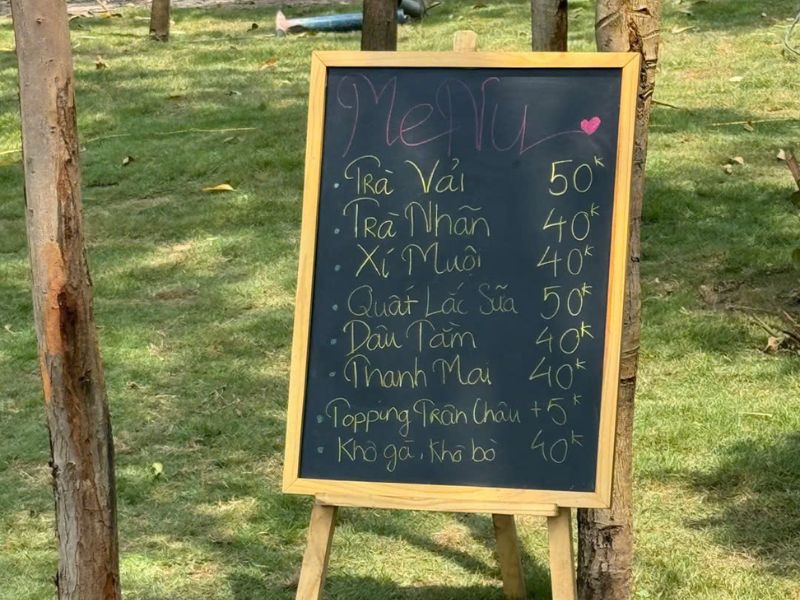 MeNu
Trà Vải 50k
Trà Nhãn 40k
Xí Muội 40k
Quất Lắc Sữa 50k
Dâu Tằm 40k
Thanh Mai 40k
Topping Trân Châu +5k
Khô gà, khô bò 40k